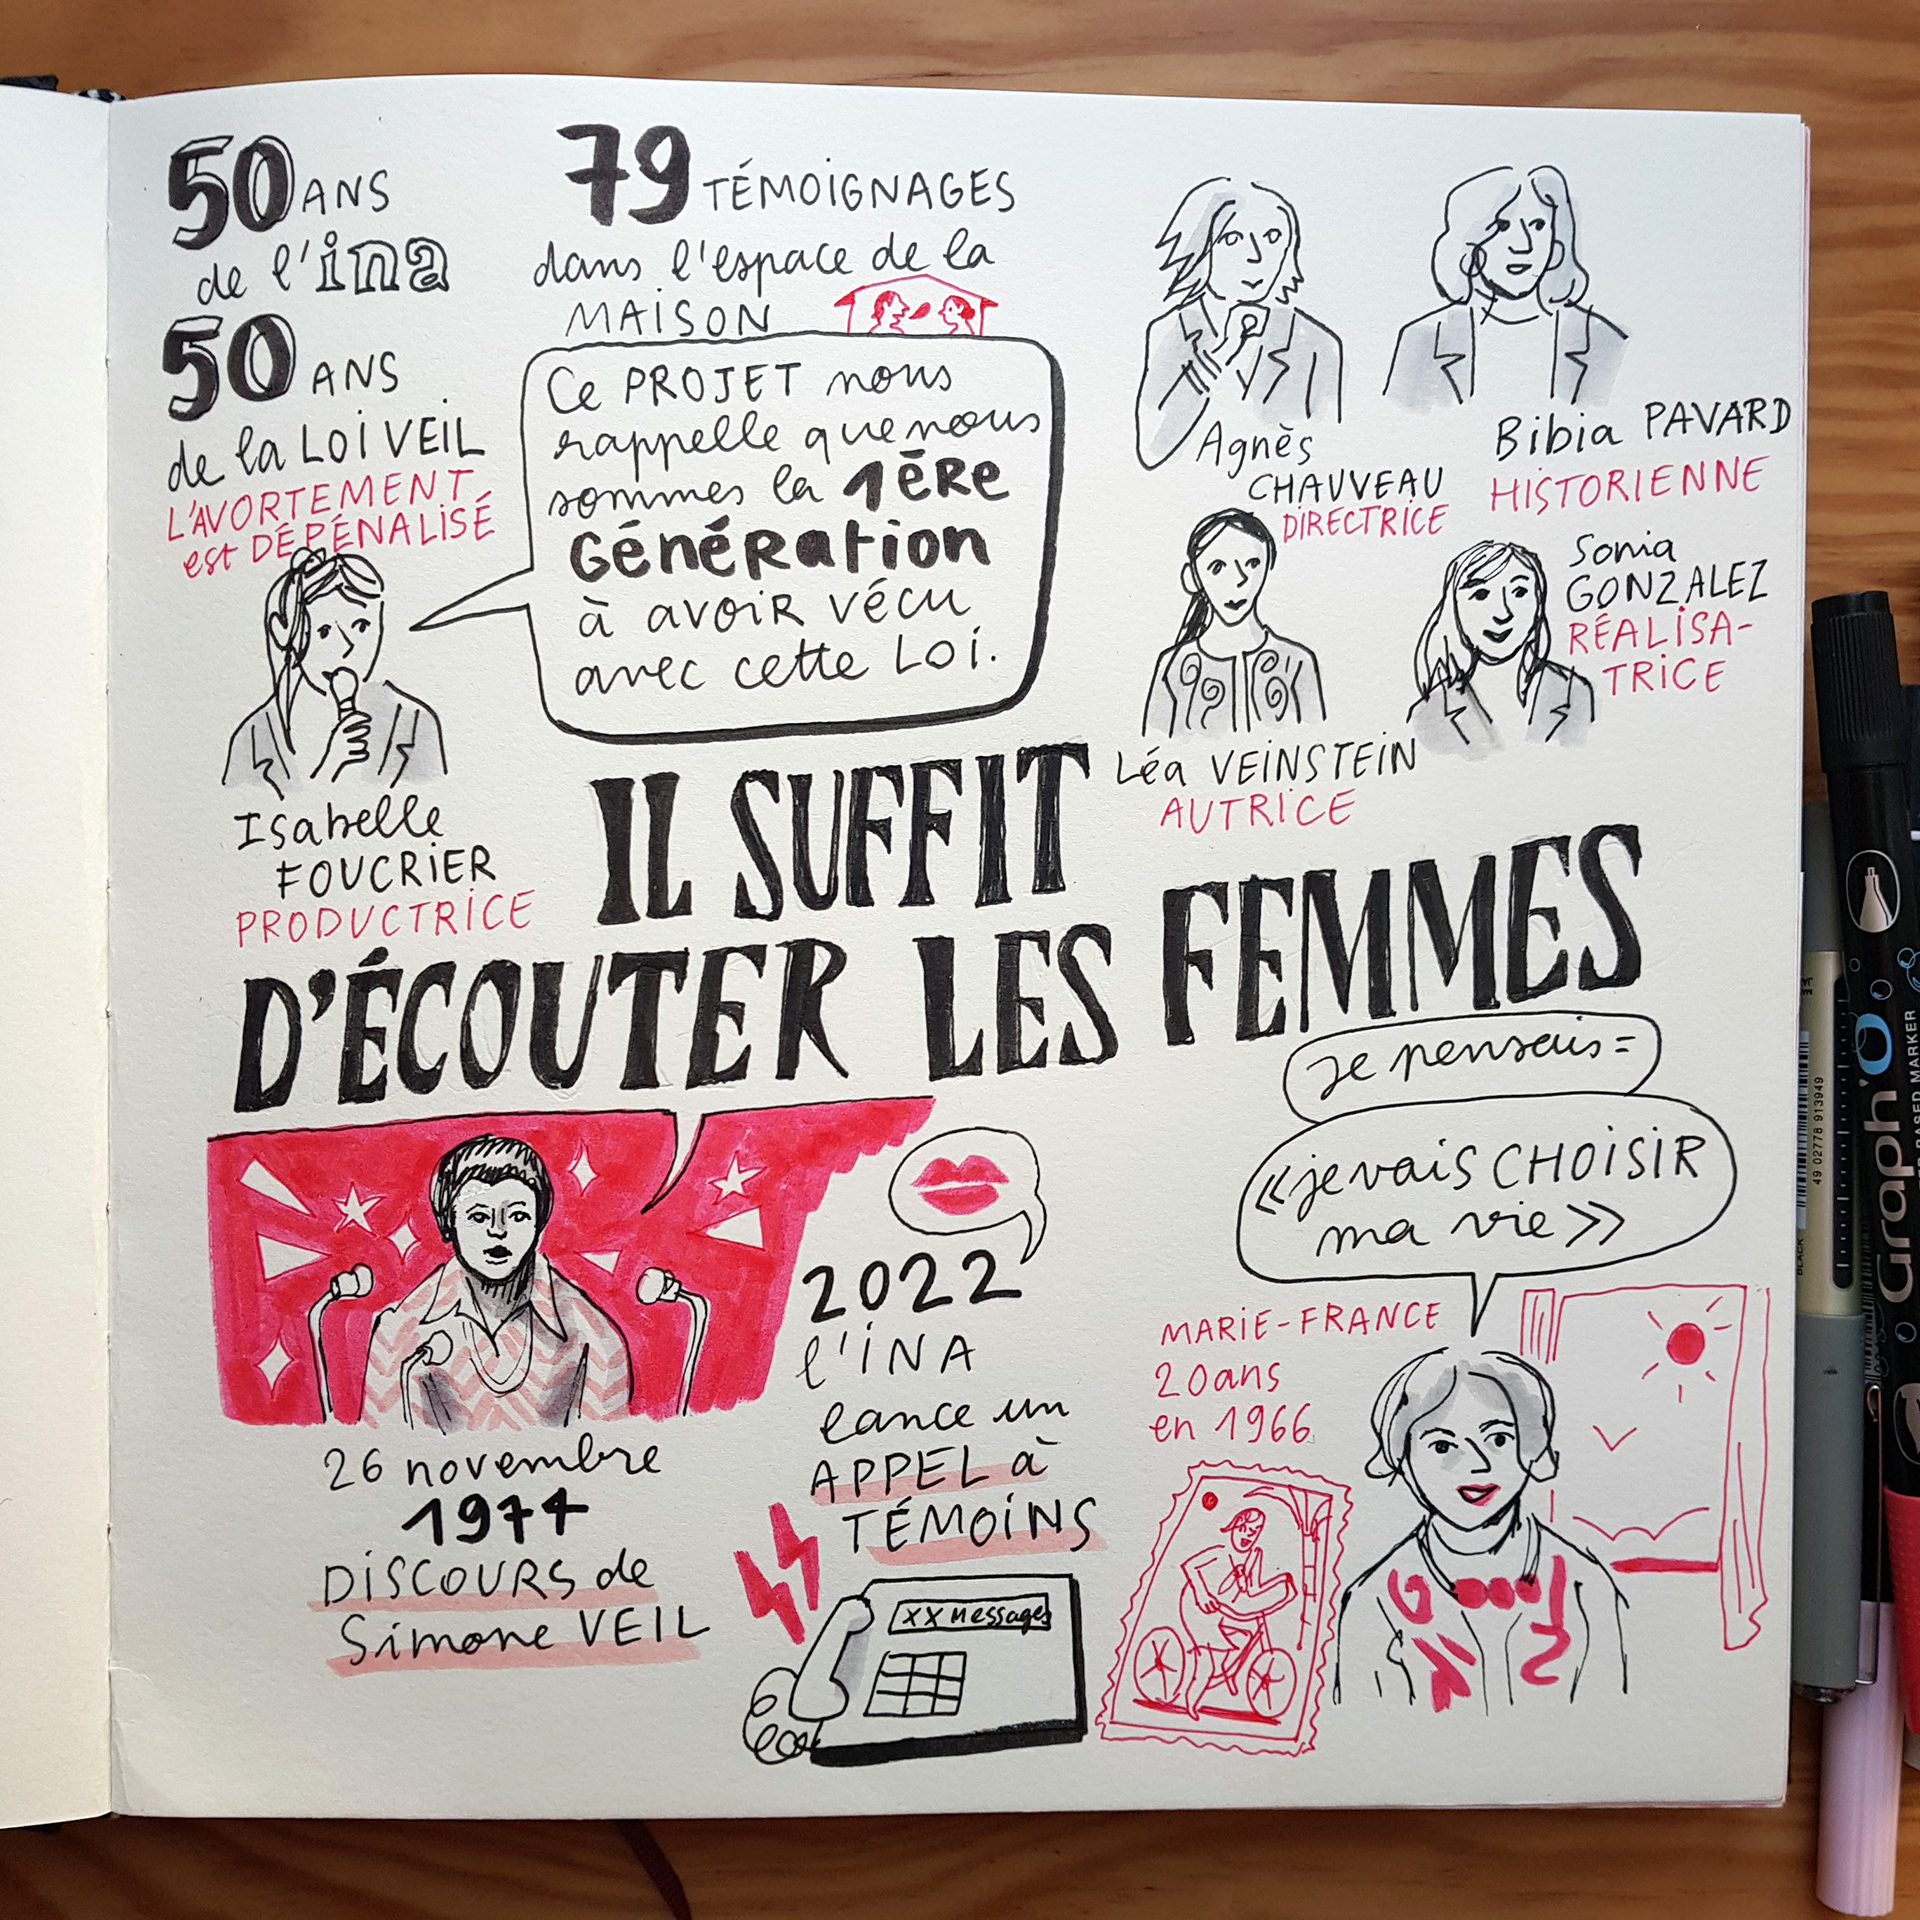 50 ANS
de l'ina
50 ANS
de la LOI VEIL
L'AVORTEMENT
est DÉPÉNALISÉ
79 TÉMOIGNAGES
dans l'espace de la
MAISON
Ce PROJET nous
rappelle que nous
sommes la 1ÈRE
Génération
à avoir vécu
avec cette LOI.
Isabelle
FOUCRIER
PRODUCTRICE
Agnès
CHAUVEAU
DIRECTRICE
Bibia PAVARD
HISTORIENNE
Léa VEINSTEIN
AUTRICE
Sonia
GONZALEZ
RÉALISA-
TRICE
IL SUFFIT
D'ÉCOUTER LES FEMMES
26 novembre
1974
DISCOURS de
Simone VEIL
2022
l'INA
lance un
APPEL à
TÉMOINS
XX Messages
je pensais =
«je vais CHOISIR
ma vie»
MARIE-FRANCE
20 ans
en 1966
Graph'O
BASED MARKER
49 02778 913949
BLACK